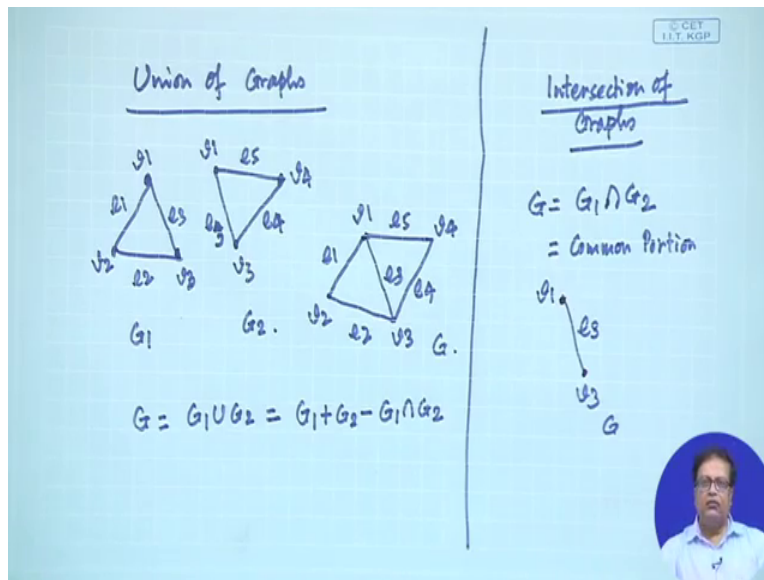 © CET
I.I.T. KGP
Union of Graphs
v1
e1
e3
v2
e2
v3
G1
v1
e5
v4
e3
e4
v3
G2.
v1
e5
v4
e1
e3
e4
v2
e2
v3
G.
G = G1 ∪ G2 = G1 + G2 - G1 ∩ G2
Intersection of
Graphs
G = G1 ∩ G2
= Common Portion
v1
e3
v3
G